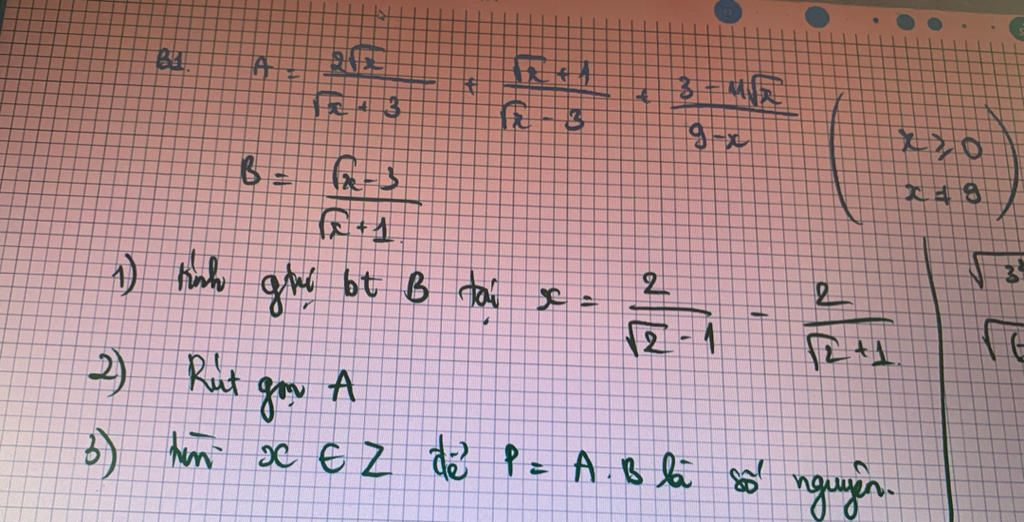 B1. A = 2√x / (√x + 3) + (√x + 1) / (√x - 3) + (3 - 11√x) / (9 - x) (x ≥ 0
x ≠ 9)
B = (√x - 3) / (√x + 1).
1) tính gtrị bt B tại x = 2 / (√2 - 1) - 2 / (√2 + 1).
2) Rút gọn A
3) tìm x ∈ Z để P = A.B là số nguyên.